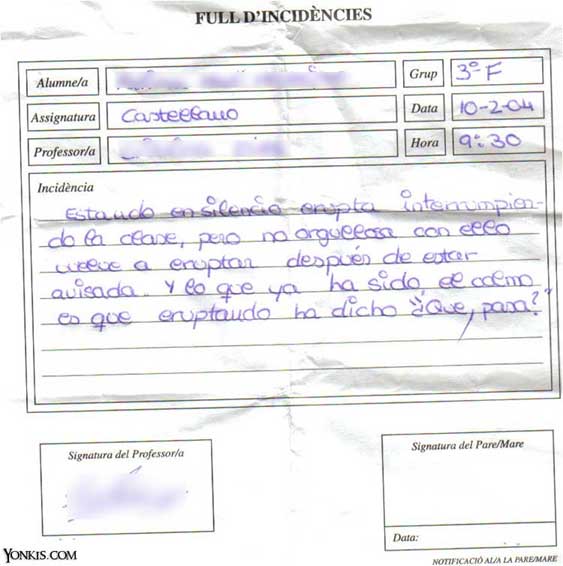 FULL D'INCIDÈNCIES
Alumne/a
Grup 3º F
Assignatura Castellano
Data 10-2-04
Professor/a
Hora 9:30
Incidència
Estando en silencio erupta interrumpien-
do la clase, pero no orgullosa con ello
vuelve a eruptar después de estar
avisada. Y lo que ya ha sido el colmo
es que eruptando ha dicho "¿Que, pasa?"
Signatura del Professor/a
Signatura del Pare/Mare
Data:
YONKIS.COM
NOTIFICACIÓ AL/A LA PARE/MARE